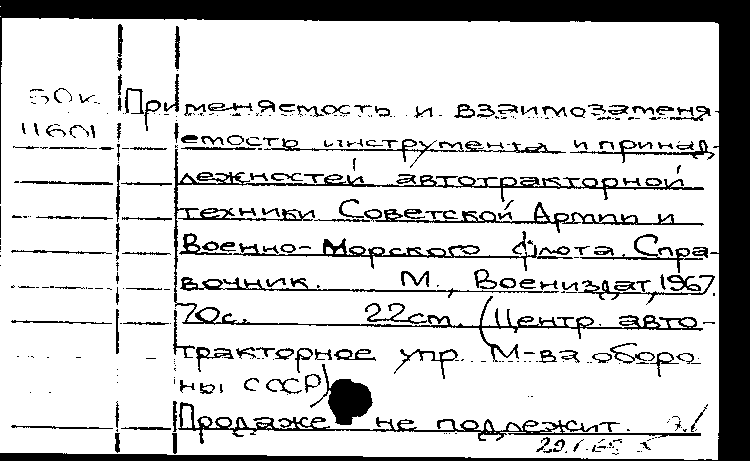 50к Применяемость и взаимозаменя-
11601 емость инструмента и принад-
лежностей автотракторной
техники Советской Армии и
Военно-Морского Флота. Спра-
вочник. М., Воениздат, 1967.
70с. 22см. (Центр. авто-
тракторное упр. М-ва оборо
ны СССР)
Продаже не подлежит.